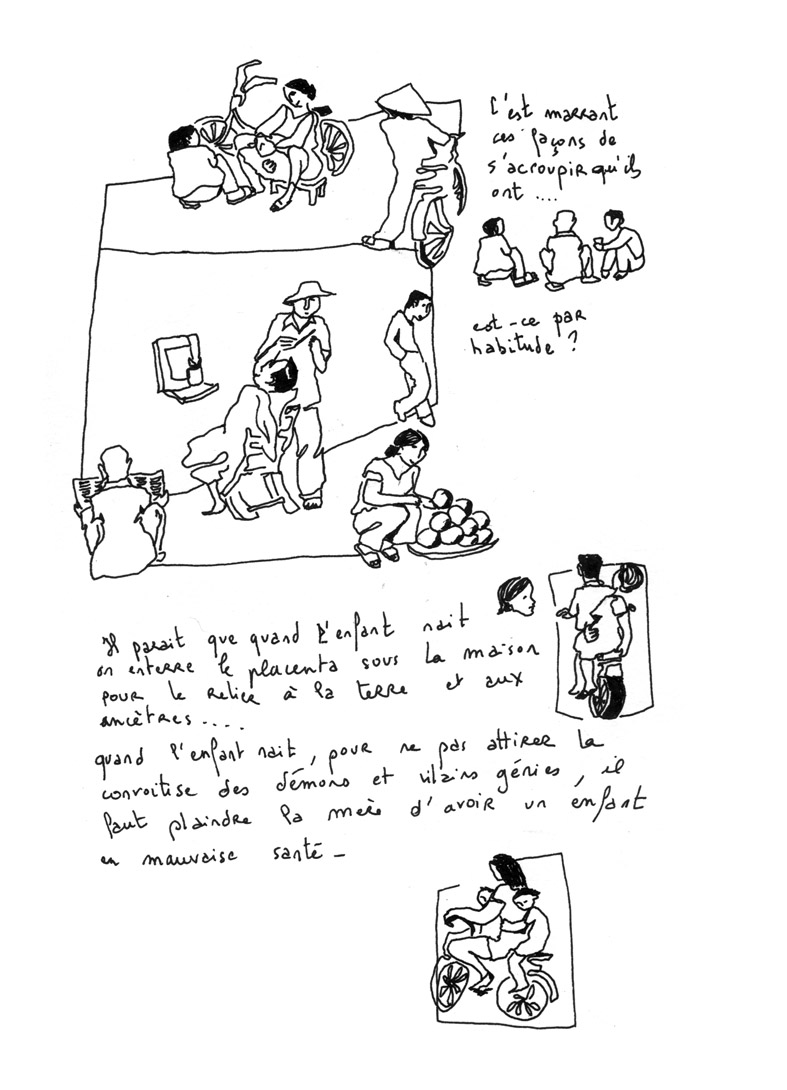 C'est marrant
ces façons de
s'acroupir qu'ils
ont ....
est-ce par
habitude ?
Il parait que quand l'enfant nait
on enterre le placenta sous la maison
pour le relier à la terre et aux
ancêtres ....
quand l'enfant nait, pour ne pas attirer la
convoitise des démons et vilains génies, il
faut plaindre la mère d'avoir un enfant
en mauvaise santé -